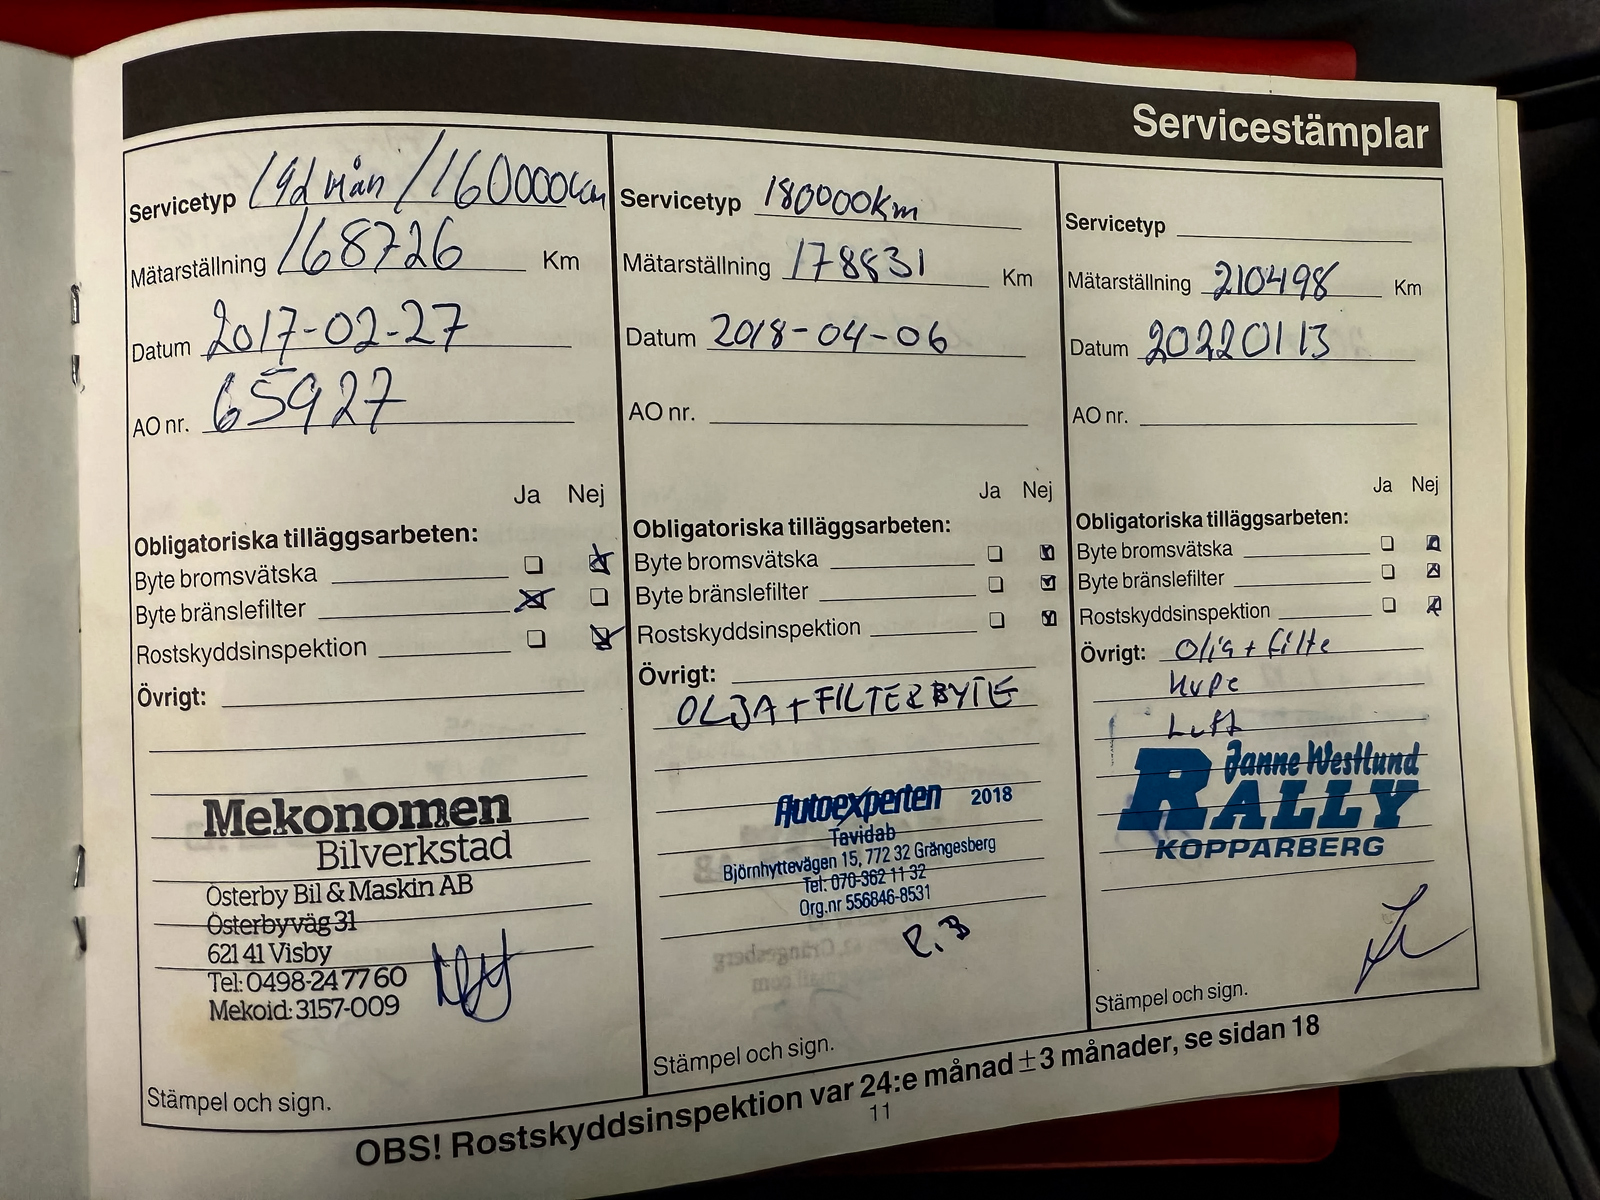 Servicestämplar
Servicetyp 192 mån / 160000km
Mätarställning 168726 Km
Datum 2017-02-27
AO nr. 65927
Ja Nej
Obligatoriska tilläggsarbeten:
Byte bromsvätska
Byte bränslefilter
Rostskyddsinspektion
Övrigt:
Mekonomen
Bilverkstad
Österby Bil & Maskin AB
Österbyväg 31
621 41 Visby
Tel: 0498-24 77 60
Mekoid: 3157-009
Stämpel och sign.
Servicetyp 180000km
Mätarställning 178831 Km
Datum 2018-04-06
AO nr.
Ja Nej
Obligatoriska tilläggsarbeten:
Byte bromsvätska
Byte bränslefilter
Rostskyddsinspektion
Övrigt:
OLJA + FILTERBYTE
Autoexperten 2018
Tavidab
Björnhyttevägen 15, 772 32 Grängesberg
Tel: 070-362 11 32
Org.nr 556846-8531
R.B
Stämpel och sign.
Servicetyp
Mätarställning 210498 Km
Datum 20220113
AO nr.
Ja Nej
Obligatoriska tilläggsarbeten:
Byte bromsvätska
Byte bränslefilter
Rostskyddsinspektion
Övrigt: Olja + filte
kupe
Luft
Janne Westlund
RALLY
KOPPARBERG
Stämpel och sign.
OBS! Rostskyddsinspektion var 24:e månad ±3 månader, se sidan 18
11